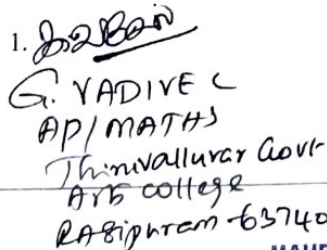 1.
G. VADIVEL
AP/MATHS
Thiruvalluvar Govt
Arts college
RASipuram-63740